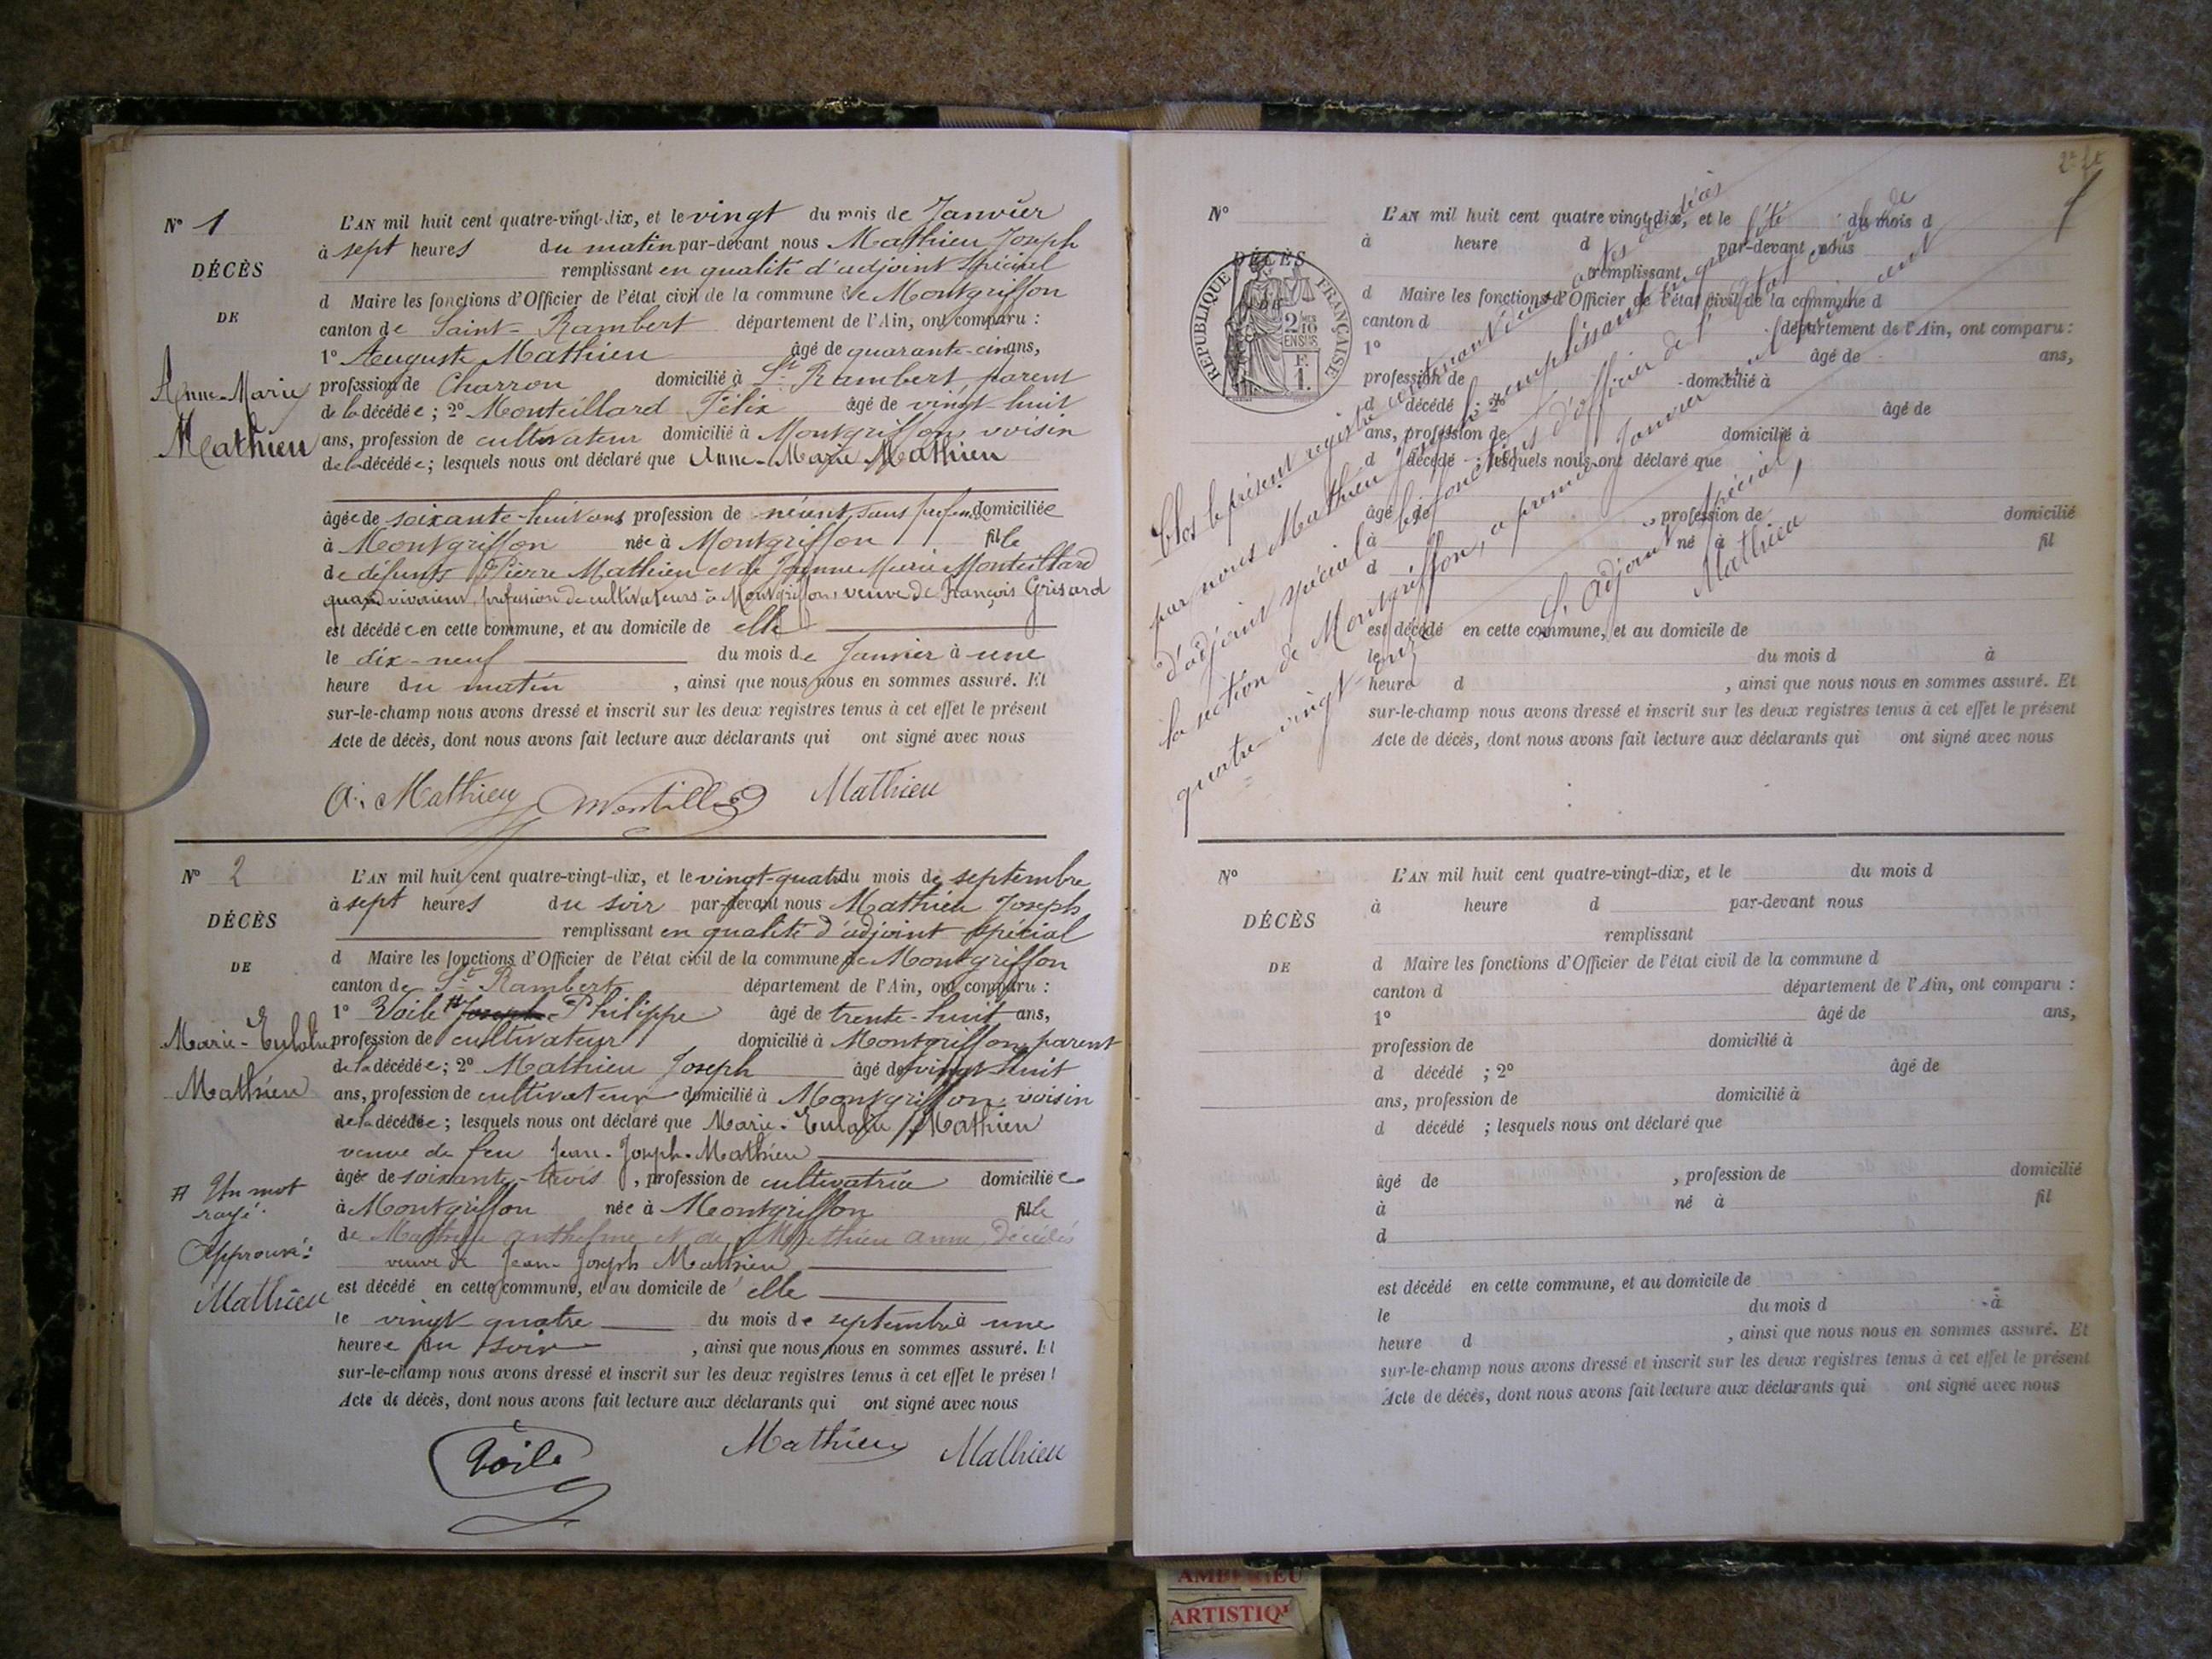 N° 1
DÉCÈS
DE
Anne-Marie
Mathieu
L'AN mil huit cent quatre-vingt-dix, et le vingt du mois de Janvier
à sept heures du matin par-devant nous Mathieu Joseph
remplissant en qualité d'adjoint spécial
d Maire les fonctions d'Officier de l'état civil de la commune de Montgriffon
canton de Saint-Rambert département de l'Ain, ont comparu :
1° Auguste Mathieu âgé de quarante-cinq ans,
profession de Charron domicilié à St Rambert, parent
de la décédée ; 2° Monteillard Félix âgé de vingt-huit
ans, profession de cultivateur domicilié à Montgriffon, voisin
de la décédée ; lesquels nous ont déclaré que Anne-Marie Mathieu
âgée de soixante-huit ans profession de néant, sans domiciliée
à Montgriffon née à Montgriffon fille
de défunts Pierre Mathieu et de Jeanne Marie Monteillard
quand vivaient, profession de cultivateurs à Montgriffon, veuve de François Grisard
est décédée en cette commune, et au domicile de elle
le dix-neuf du mois de Janvier à une
heure du matin , ainsi que nous nous en sommes assuré. Et
sur-le-champ nous avons dressé et inscrit sur les deux registres tenus à cet effet le présent
Acte de décès, dont nous avons fait lecture aux déclarants qui ont signé avec nous
A. Mathieu Mathieu
N° 2
DÉCÈS
DE
Marie-Eulalie
Mathieu
# Un mot
rayé.
Approuvé :
Mathieu
L'AN mil huit cent quatre-vingt-dix, et le vingt-quatre du mois de septembre
à sept heures du soir par-devant nous Mathieu Joseph
remplissant en qualité d'adjoint spécial
d Maire les fonctions d'Officier de l'état civil de la commune de Montgriffon
canton de St Rambert département de l'Ain, ont comparu :
1° Voile # Joseph Philippe âgé de trente-huit ans,
profession de cultivateur domicilié à Montgriffon, parent
de la décédée ; 2° Mathieu Joseph âgé de vingt-huit
ans, profession de cultivateur domicilié à Montgriffon, voisin
de la décédée ; lesquels nous ont déclaré que Marie-Eulalie Mathieu
veuve de feu Jean-Joseph-Mathieu
âgée de soixante-trois , profession de cultivatrice domiciliée
à Montgriffon née à Montgriffon fille
de Mathieu anthelme et de Mathieu anne, Décédés
veuve de Jean-Joseph Mathieu
est décédé en cette commune, et au domicile de elle
le vingt quatre du mois de septembre à une
heure du soir , ainsi que nous nous en sommes assuré. Et
sur-le-champ nous avons dressé et inscrit sur les deux registres tenus à cet effet le présent
Acte de décès, dont nous avons fait lecture aux déclarants qui ont signé avec nous
Voile Mathieu Mathieu
N°
DÉCÈS
DE
RÉPUBLIQUE FRANÇAISE
2/10 EN SUS
F
1.
L'AN mil huit cent quatre vingt-dix, et le du mois d
à heure d par-devant nous
remplissant
d Maire les fonctions d'Officier de l'état civil de la commune d
canton d département de l'Ain, ont comparu :
1° âgé de ans,
profession de domicilié à
d décédé ; 2° âgé de
ans, profession de domicilié à
d décédé ; lesquels nous ont déclaré que
âgé de , profession de domicilié
à né à fil
d
est décédé en cette commune, et au domicile de
le du mois d à
heure d , ainsi que nous nous en sommes assuré. Et
sur-le-champ nous avons dressé et inscrit sur les deux registres tenus à cet effet le présent
Acte de décès, dont nous avons fait lecture aux déclarants qui ont signé avec nous
Clos le présent registre contenant deux actes de décès
par nous Mathieu Joseph remplissant en qualité de
d'adjoint spécial les fonctions d'officier de l'Etat civil de
la section de Montgriffon, ce premier Janvier mil huit cent
quatre-vingt-onze
L'Adjoint spécial,
Mathieu
N°
DÉCÈS
DE
L'AN mil huit cent quatre-vingt-dix, et le du mois d
à heure d par-devant nous
remplissant
d Maire les fonctions d'Officier de l'état civil de la commune d
canton d département de l'Ain, ont comparu :
1° âgé de ans,
profession de domicilié à
d décédé ; 2° âgé de
ans, profession de domicilié à
d décédé ; lesquels nous ont déclaré que
âgé de , profession de domicilié
à né à fil
d
est décédé en cette commune, et au domicile de
le du mois d à
heure d , ainsi que nous nous en sommes assuré. Et
sur-le-champ nous avons dressé et inscrit sur les deux registres tenus à cet effet le présent
Acte de décès, dont nous avons fait lecture aux déclarants qui ont signé avec nous